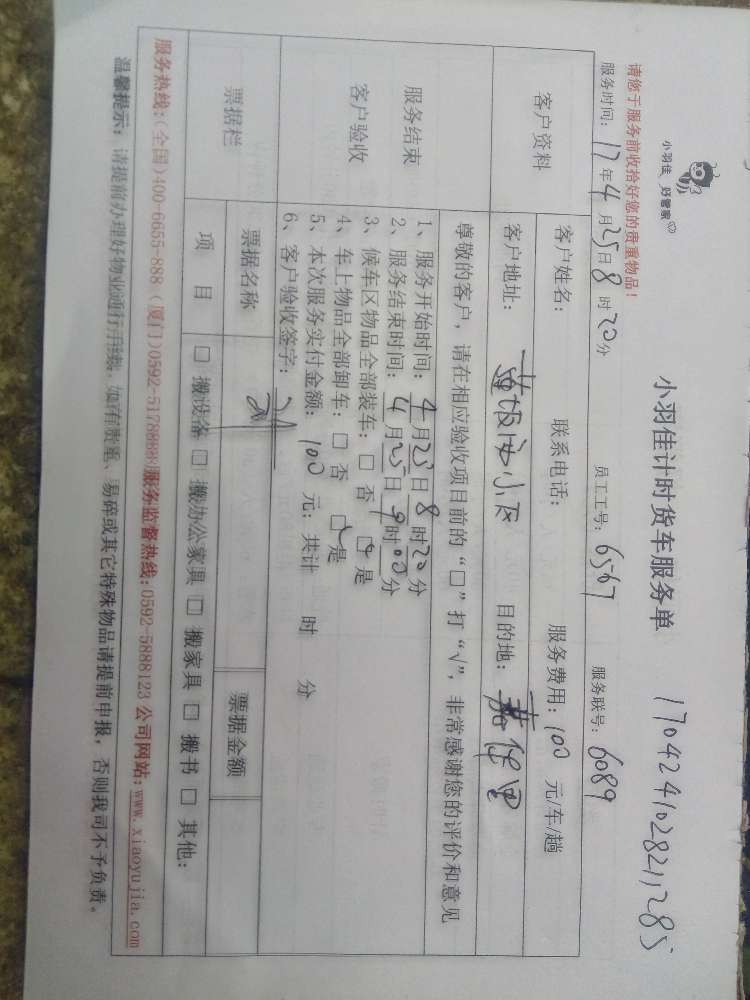 小羽佳 好管家
小羽佳计时货车服务单 170424102821 1285
请您于服务前收拾好您的贵重物品！
服务时间：17年4月25日8时20分 员工工号：6567 服务联号：6089
客户资料
客户姓名： 联系电话： 服务费用：100元/车/趟
客户地址：小区 目的地：
服务结束
客户验收
尊敬的客户，请在相应验收项目前的“□”打“√”，非常感谢您的评价和意见
1、服务开始时间：4月25日8时20分
2、服务结束时间：4月25日9时00分
3、候车区物品全部装车：□ 否 □ 是
4、车上物品全部卸车：□ 否 □ 是
5、本次服务实付金额：100元；共计 时 分
6、客户验收签字：
票据栏
票据名称 票据金额
项 目 □ 搬设备 □ 搬办公家具 □ 搬家具 □ 搬书 □ 其他：
服务热线：（全国）400-6655-888（厦门）0592-5178888 服务监督热线：0592-5888123 公司网站：www.xiaoyujia.com
温馨提示：请提前办理好物业通行手续，如有贵重、易碎或其它特殊物品请提前申报，否则我司不予负责。